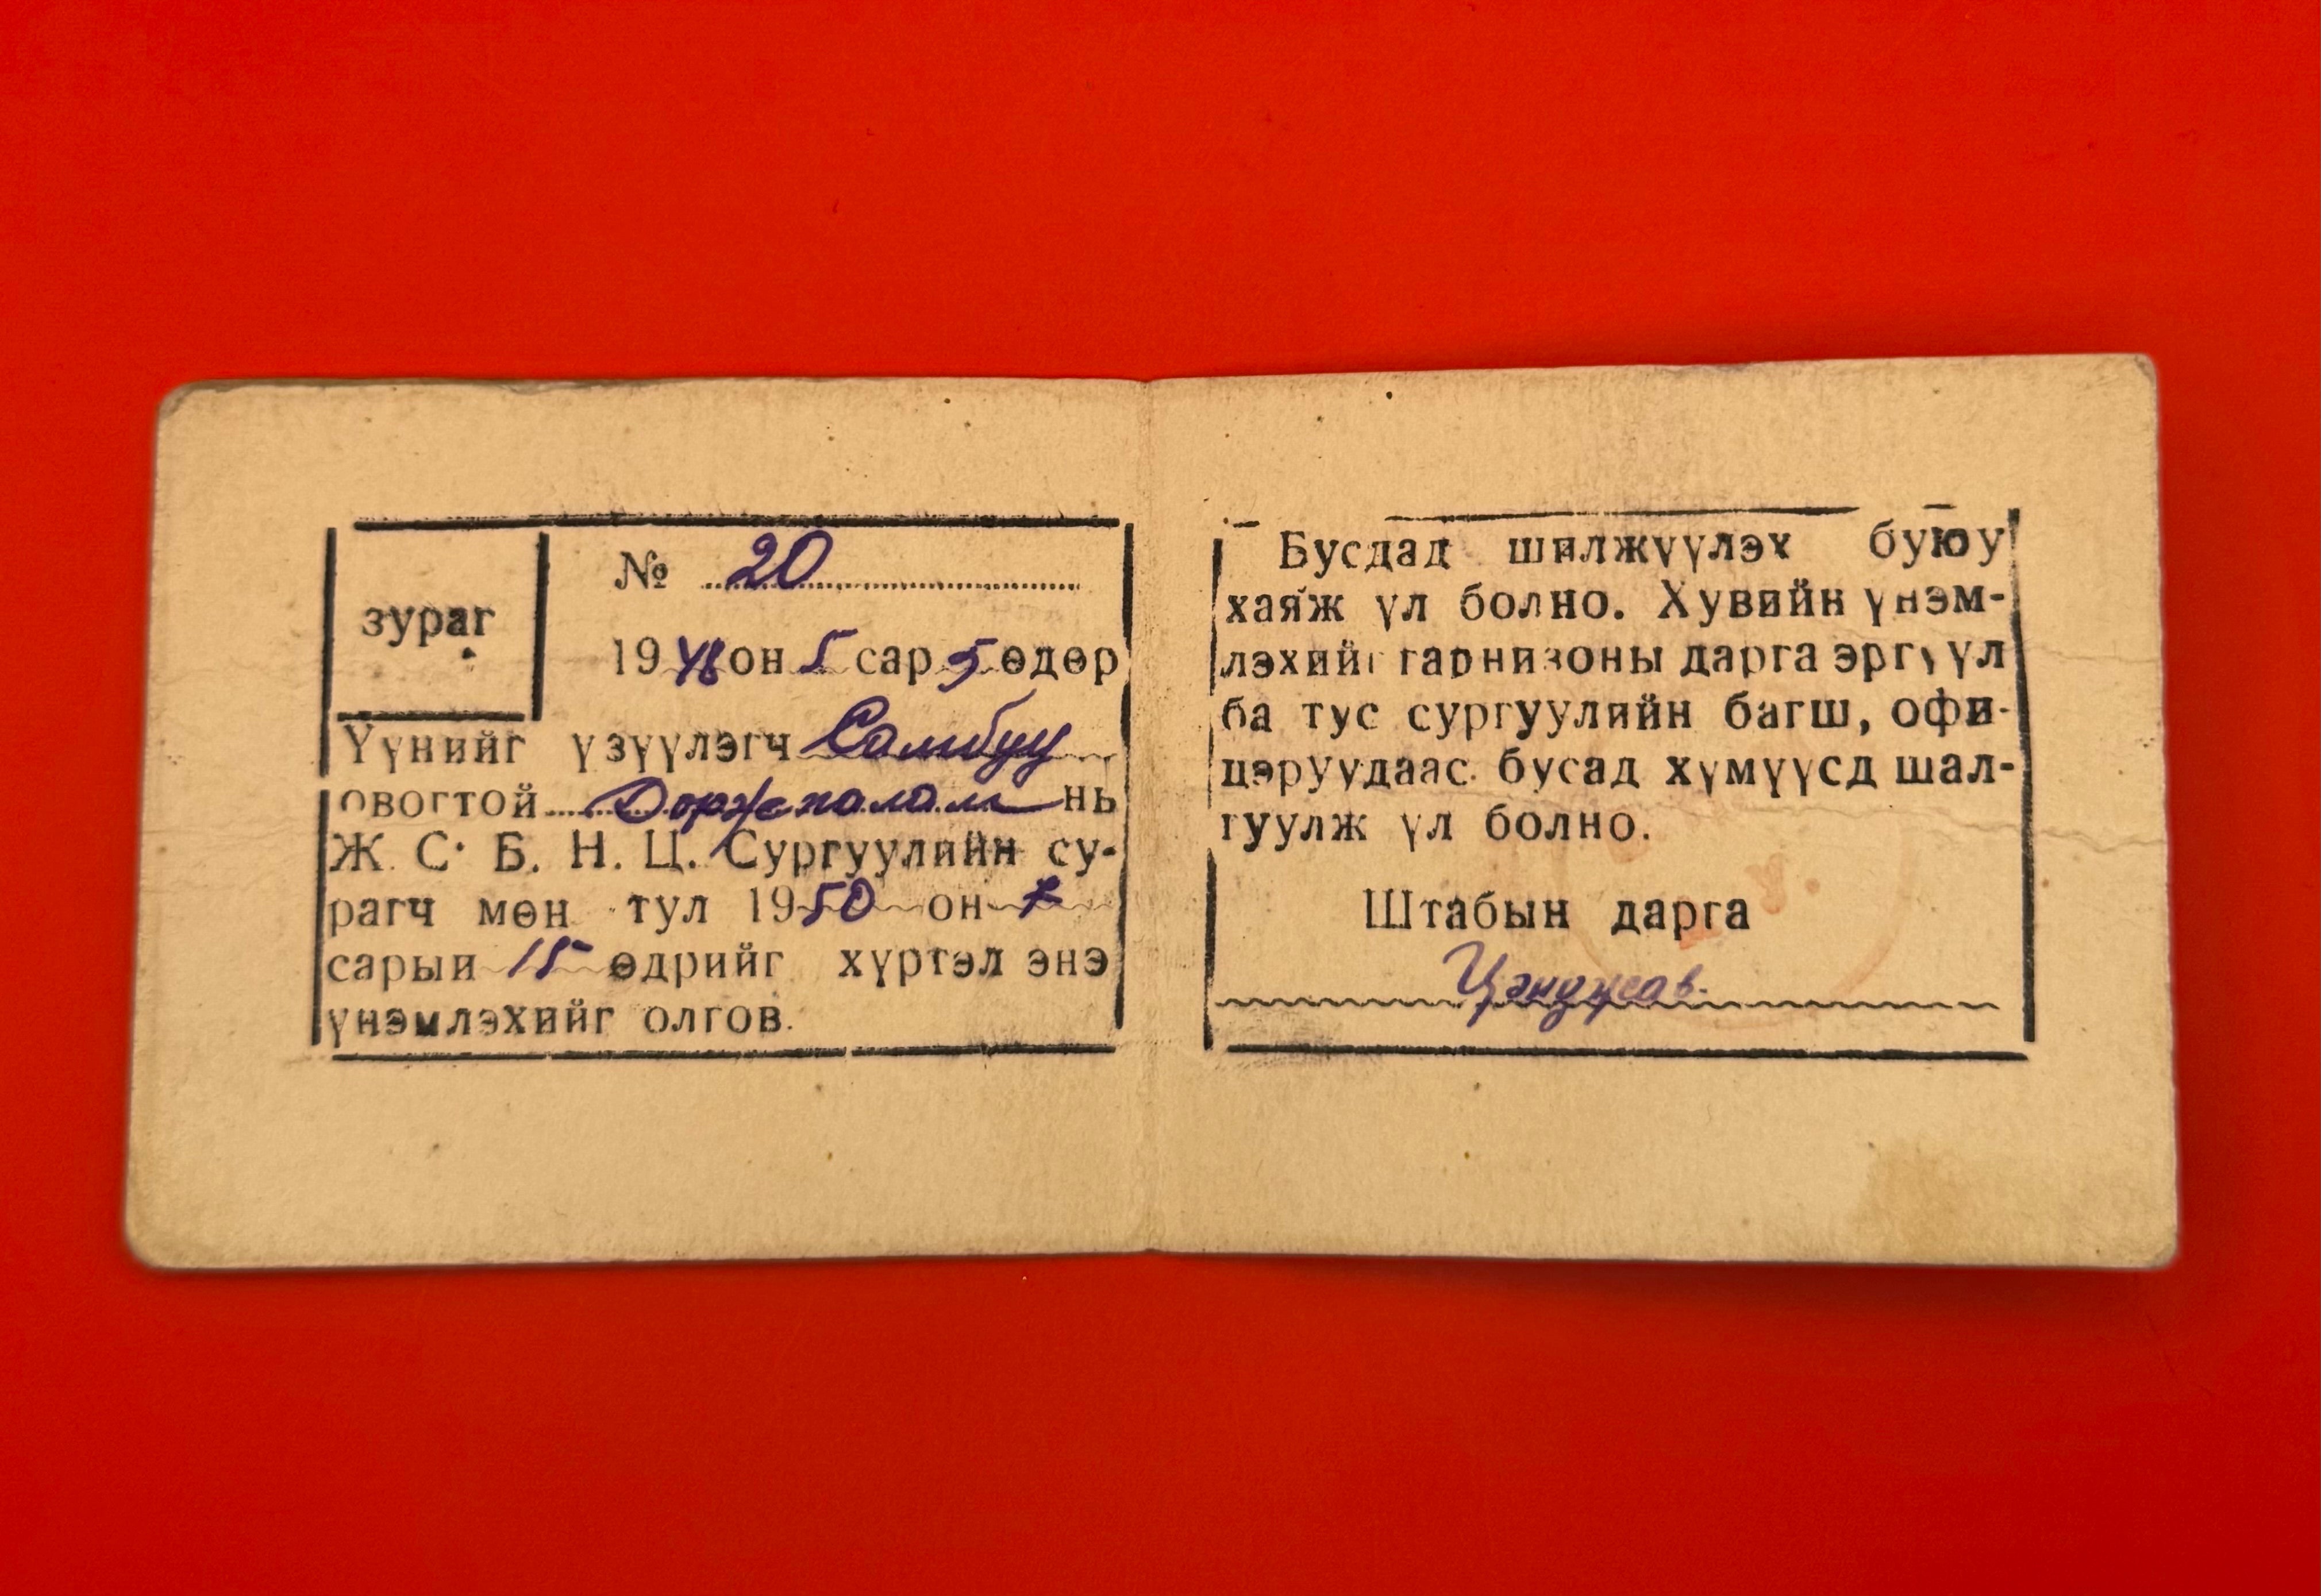 зураг
№ 20
1948 он 5 сар 5 өдөр
Үүнийг үзүүлэгч Самбуу
овогтой Доржпалам нь
Ж. С. Б. Н. Ц. Сургуулийн су-
рагч мөн тул 1950 он 7
сарыи 15 өдрийг хүртэл энэ
үнэмлэхийг олгов.
Бусдад шилжүүлэх буюу
хаяж үл болно. Хувийн үнэм-
лэхийг гарнизоны дарга эргүүл
ба тус сургуулийн багш, офи-
цэруудаас бусад хүмүүсд шал-
гуулж үл болно.
Штабын дарга
Цэнджав.